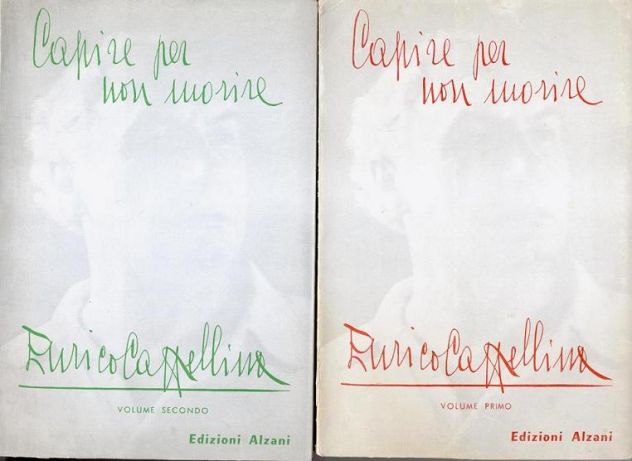 Capire per
non morire
Enrico Cappellina
VOLUME SECONDO
Edizioni Alzani
Capire per
non morire
Enrico Cappellina
VOLUME PRIMO
Edizioni Alzani